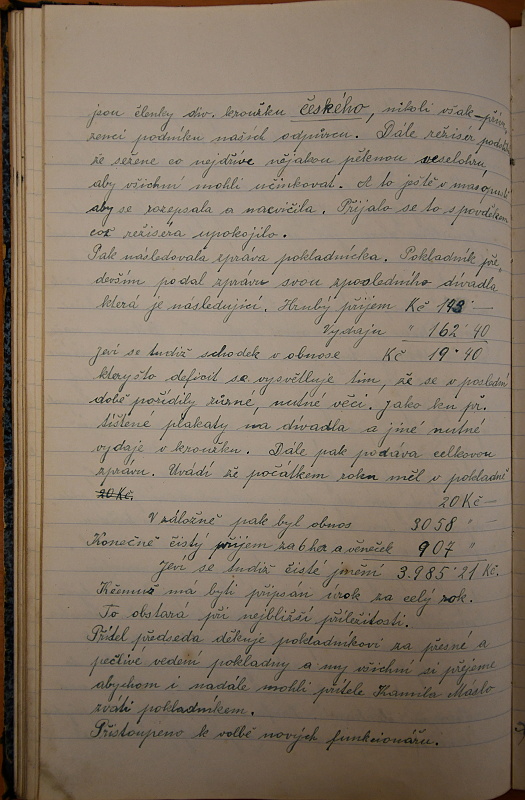 jsou členky div. kroužku českého, nikoli však přívr-
ženci podniku našich odpůrcu. Dále režisér podotkl
že sežene co nejdříve nějakou pěknou veselohru,
aby všichni mohli učinkovat. A to ještě v masopustě
aby se rozepsala a nacvičila. Přijalo se to s povděkem
což režiséra upokojilo.
Pak následovala zpráva pokladníka. Pokladník pře-
devším podal zprávu svou z posledního divadla
která je následující. Hrubý příjem Kč 143 —
Vydaju " 162·40
Jeví se tudiž schodek v obnose Kč 19·40
kterýžto deficit se vysvětluje tim, že se v poslední
době pořídily různé, nutné věci. Jako ku př.
tištené plakaty na divadla a jiné nutné
vydaje v kroužku. Dále pak podava celkovou
zprávu. Uvádí že počátkem roku měl v pokladně
20 Kč.
20 Kč —
V záložně pak byl obnos 3058 " —
Konečně čistý příjem za 6 her a věneček 907 "
Jeví se tudiž čisté jmění 3.985·21 Kč.
Kčemuž má byti připsan urok za celý rok.
To obstará při nejbližší příležitosti.
Přítel předseda děkuje pokladníkovi za přesné a
pečlivé vedení pokladny a my všichni si přejeme
abychom i nadále mohli přítele Kamila Maslo
zváti pokladníkem.
Přistoupeno k volbě nových funkcionářu.